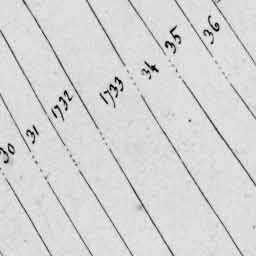 30
31
1732
1733
34
35
36